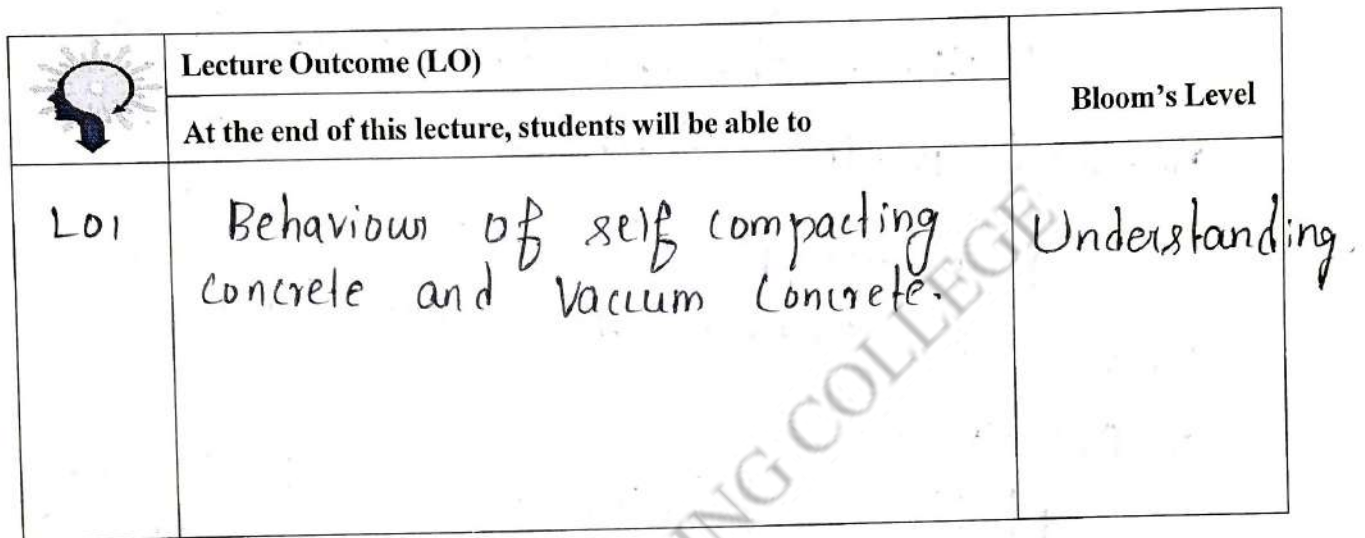 Lecture Outcome (LO)
Bloom's Level
At the end of this lecture, students will be able to
LO1
Behaviour of self compacting
concrete and Vaccum Concrete.
Understanding.
ING COLLEGE